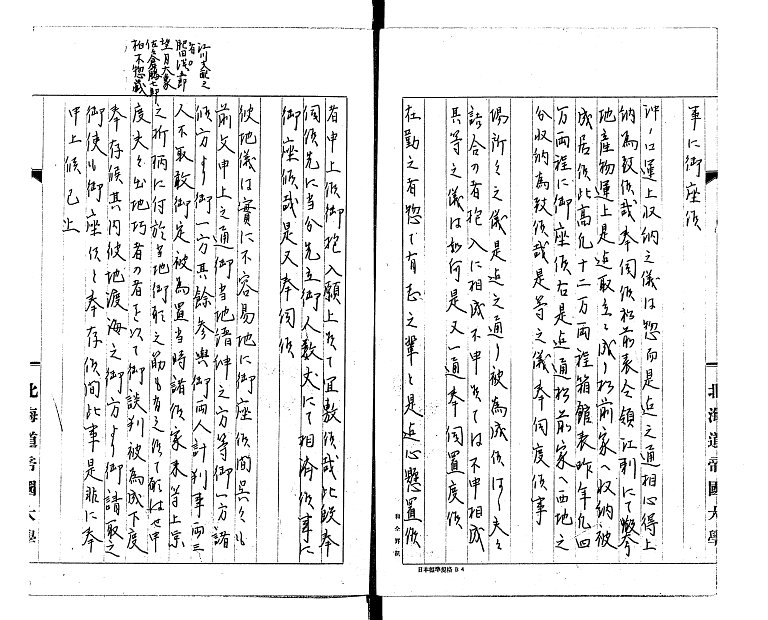 事に御座候
沖ノ口運上収納之儀は惣而是迄之通相心得上
納為致候哉奉伺候松前表今領江刺にて
地産物運上是迄取立に成リ松前家へ収納被
成居候此高凡十二万両程箱館表昨年凡四
万両程に御座候右是迄通松前家へ西地之
分収納為致候哉是等之儀奉伺度候事
場所々之儀是迄之通リ被為成候はゞ夫々
請合の者抱入に相成不申候ては不申相成
其等之儀は如何是又一通奉伺置度候
在勤之者惣て有志之輩と是迄心懸置候
北海道帝國大學
日本標準規格B4
者申上候御抱入願上候て宜敷候哉此段奉
伺候先に当分先立御人数丈にて相済候事に
御座候哉是又奉伺候
彼地儀は實に不容易地に御座候間呉々も
前文申上之通御当地縉紳之方等御一方諸
候方より御一方其餘参與御両人計判事両三
人不取敢御定被為置当時諸侯家来等上京
之折柄に付於当地御
度夫々出地巧者の者を以て御談判被為成下度
奉存候其内彼地渡海之御方より御請取之
御使も御座候と奉存候間此事是非に奉
申上候已上
望月大象
佐倉藤七郎
柏木惣蔵
北海道帝國大學